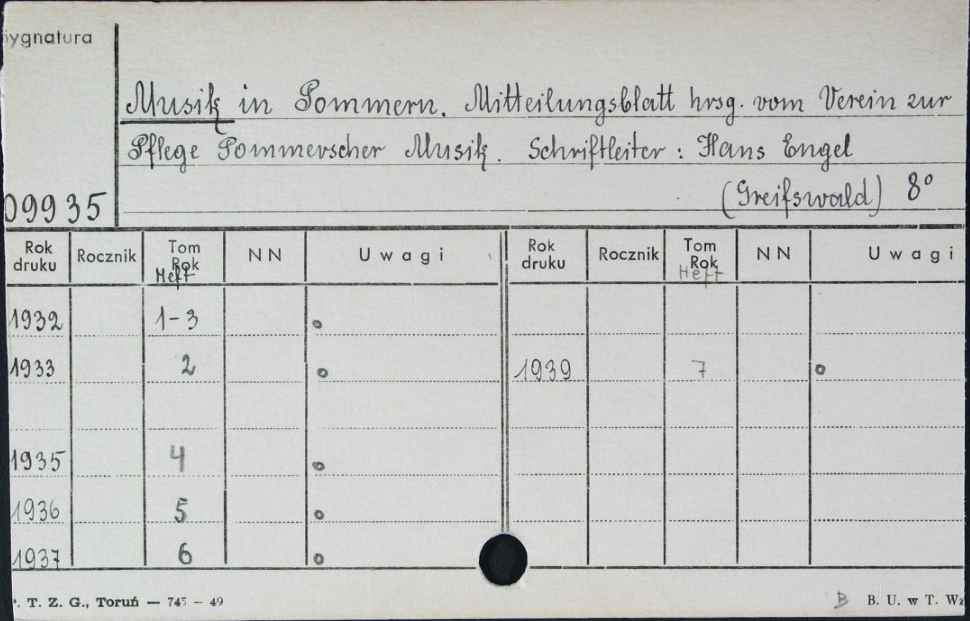 Sygnatura
Musik in Pommern. Mitteilungsblatt hrsg. vom Verein zur
Pflege Pommerscher Musik. Schriftleiter: Hans Engel
09935 (Greifswald) 8°
Rok druku Rocznik Tom Rok Heft NN Uwagi Rok druku Rocznik Tom Rok Heft NN Uwagi
1932 1-3 o
1933 2 o 1939 7 o
1935 4 o
1936 5 o
1937 6 o
T. Z. G., Toruń — 745 — 49 B B. U. w T. Wz